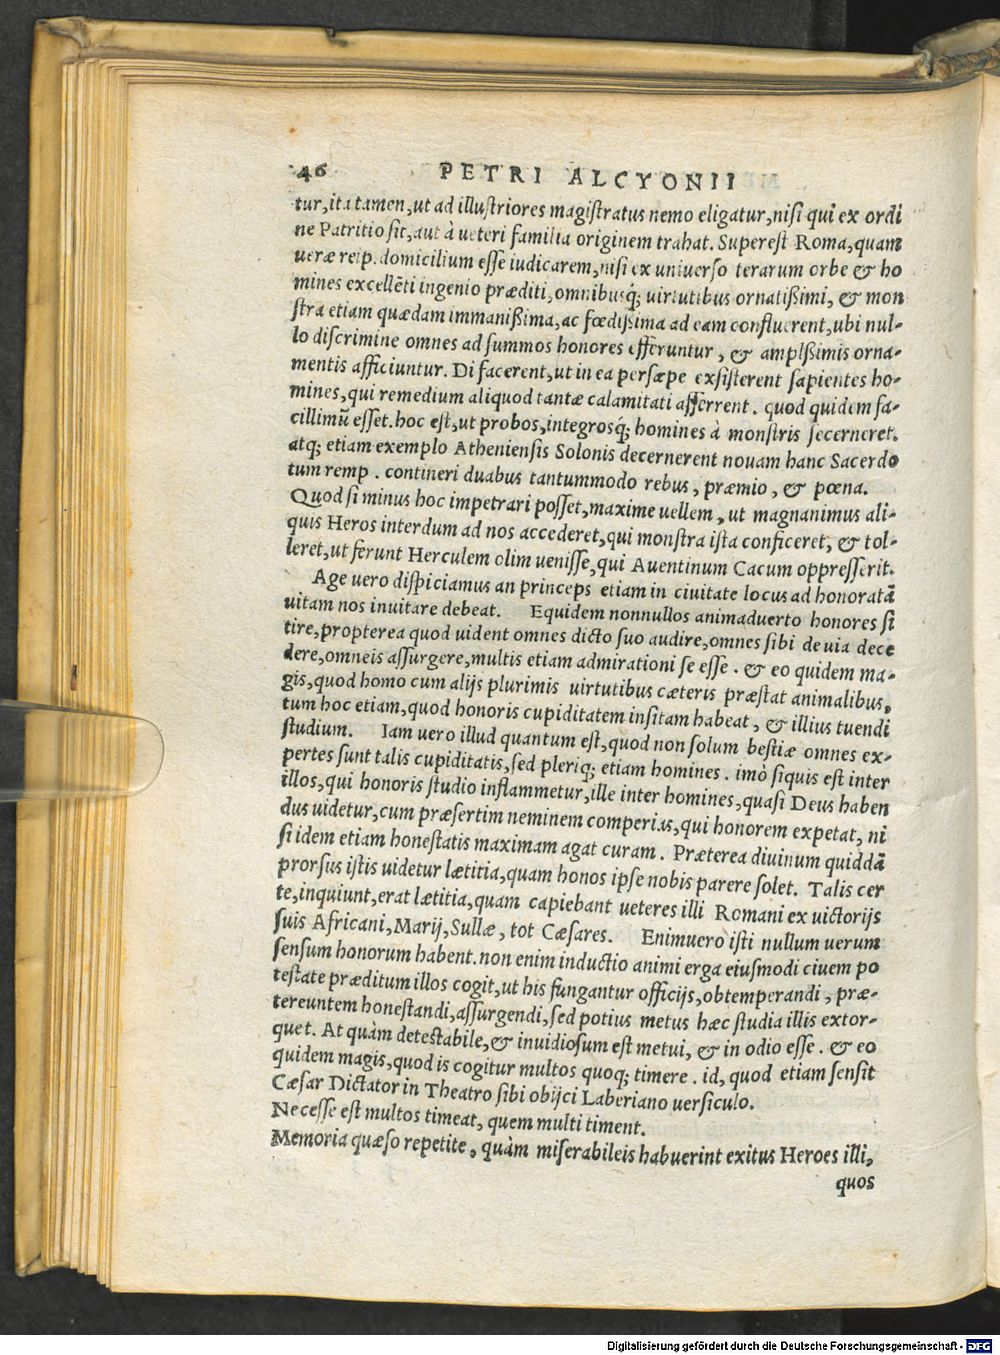 46 PETRI ALCYONII
tur, ita tamen, ut ad illustriores magistratus nemo eligatur, nisi qui ex ordi
ne Patritio sit, aut à ueteri familia originem trahat. Superest Roma, quam
ueræ reip. domicilium esse iudicarem, nisi ex uniuerso terarum orbe & ho
mines excellēti ingenio præditi, omnibusq; uirtutibus ornatißimi, & mon
stra etiam quædam immanißima, ac fœdißima ad eam confluerent, ubi nul-
lo discrimine omnes ad summos honores efferuntur, & amplßimis orna-
mentis afficiuntur. Di facerent, ut in ea persæpe exsisterent sapientes ho-
mines, qui remedium aliquod tantæ calamitati afferrent. quod quidem fa-
cillimū esset. hoc est, ut probos, integrosq; homines à monstris secerneret.
atq; etiam exemplo Atheniensis Solonis decernerent nouam hanc Sacerdo
tum remp. contineri duabus tantummodo rebus, præmio, & pœna.
Quod si minus hoc impetrari posset, maxime uellem, ut magnanimus ali-
quis Heros interdum ad nos accederet, qui monstra ista conficeret, & tol-
leret, ut ferunt Herculem olim uenisse, qui Auentinum Cacum oppresserit.
Age uero dispiciamus an princeps etiam in ciuitate locus ad honoratā
uitam nos inuitare debeat. Equidem nonnullos animaduerto honores si
tire, propterea quod uident omnes dicto suo audire, omnes sibi de uia dece
dere, omneis assurgere, multis etiam admirationi se esse. & eo quidem ma-
gis, quod homo cum alijs plurimis uirtutibus cæteris præstat animalibus,
tum hoc etiam, quod honoris cupiditatem insitam habeat, & illius tuendi
studium. Iam uero illud quantum est, quod non solum bestiæ omnes ex-
pertes sunt talis cupiditatis, sed pleriq; etiam homines. imò siquis est inter
illos, qui honoris studio inflammetur, ille inter homines, quasi Deus haben
dus uidetur, cum præsertim neminem comperias, qui honorem expetat, ni
si idem etiam honestatis maximam agat curam. Præterea diuinum quiddā
prorsus istis uidetur lætitia, quam honos ipse nobis parere solet. Talis cer
te, inquiunt, erat lætitia, quam capiebant ueteres illi Romani ex uictorijs
suis Africani, Marij, Sullæ, tot Cæsares. Enimuero isti nullum uerum
sensum honorum habent. non enim inductio animi erga eiusmodi ciuem po
testate præditum illos cogit, ut his fungantur officijs, obtemperandi, præ-
tereuntem honestandi, assurgendi, sed potius metus hæc studia illis extor-
quet. At quàm detestabile, & inuidiosum est metui, & in odio esse. & eo
quidem magis, quod is cogitur multos quoq; timere. id, quod etiam sensit
Cæsar Dictator in Theatro sibi obijci Laberiano uersiculo.
Necesse est multos timeat, quem multi timent.
Memoria quæso repetite, quàm miserabileis habuerint exitus Heroes illi,
quos
Digitalisierung gefördert durch die Deutsche Forschungsgemeinschaft - DFG